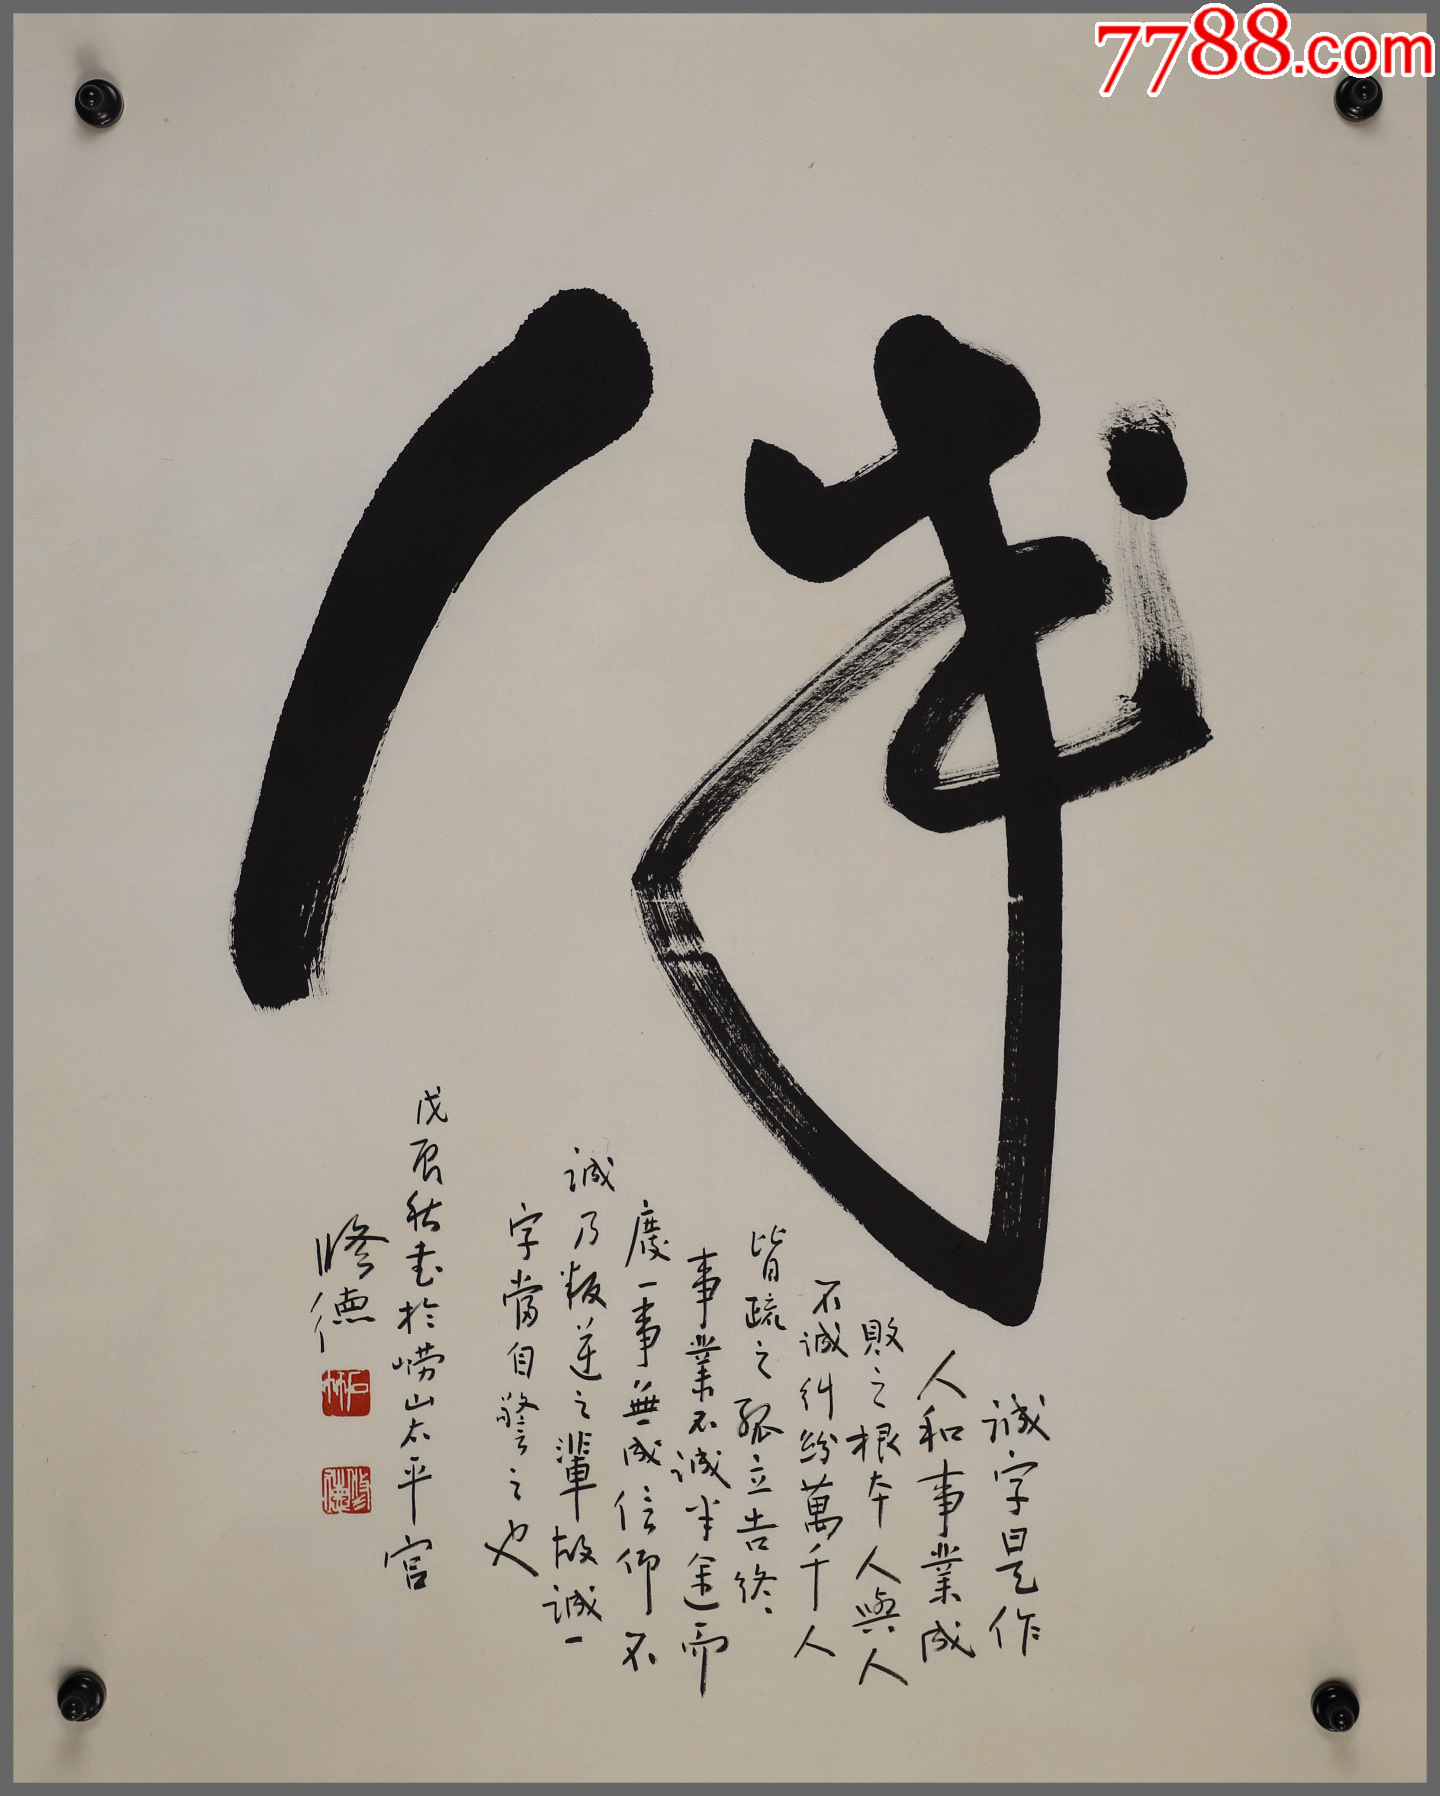 7788.com
誠
誠字是作
人和事業成
敗之根本人與人
不誠糾紛萬千人
皆疏之孤立告終
事業不誠半途而
廢一事無成信仰不
誠乃叛逆之輩故誠一
字當自警之也
戊辰秋書於崂山太平宮
修德
修德